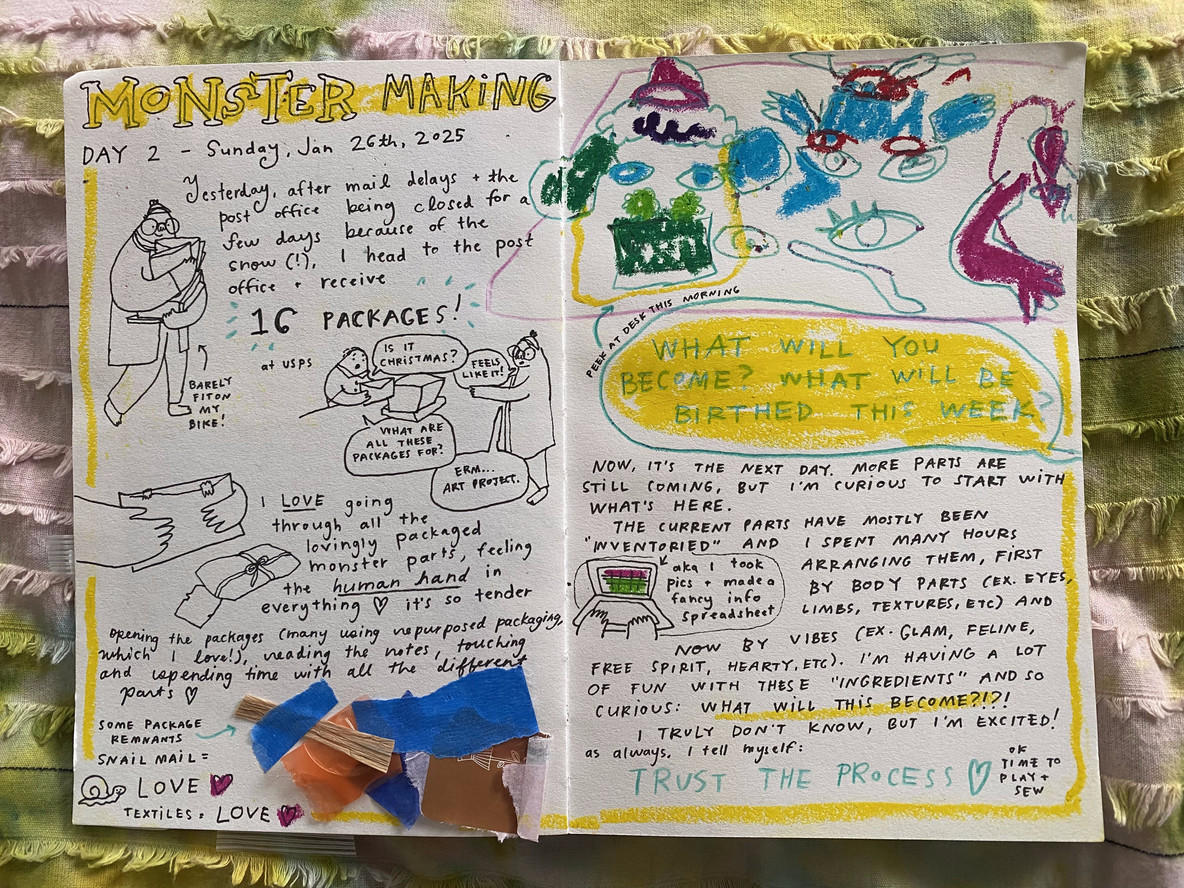 MONSTER MAKING
DAY 2 – Sunday, Jan 26th, 2025
Yesterday, after mail delays + the
post office being closed for a
few days because of the
snow (!), I head to the post
office + receive
16 PACKAGES!
BARELY
FIT ON
MY
BIKE!
at USPS
IS IT
CHRISTMAS?
FEELS
LIKE IT!
WHAT ARE
ALL THESE
PACKAGES FOR?
ERM...
ART PROJECT.
I LOVE going
through all the
lovingly packaged
monster parts, feeling
the human hand in
everything ♡ it's so tender
opening the packages (many using repurposed packaging,
which I love!), reading the notes, touching
and spending time with all the different
parts ♡
SOME PACKAGE
REMNANTS
SNAIL MAIL =
LOVE ♥
TEXTILES = LOVE ♥
PEEK AT DESK THIS MORNING
WHAT WILL YOU
BECOME? WHAT WILL BE
BIRTHED THIS WEEK?
NOW, IT'S THE NEXT DAY. MORE PARTS ARE
STILL COMING, BUT I'M CURIOUS TO START WITH
WHAT'S HERE.
THE CURRENT PARTS HAVE MOSTLY BEEN
"INVENTORIED" AND I SPENT MANY HOURS
aka I took
pics + made a
fancy info
spreadsheet
ARRANGING THEM, FIRST
BY BODY PARTS (EX. EYES,
LIMBS, TEXTURES, ETC) AND
NOW BY VIBES (EX. GLAM, FELINE,
FREE SPIRIT, HEARTY, ETC). I'M HAVING A LOT
OF FUN WITH THESE "INGREDIENTS" AND SO
CURIOUS: WHAT WILL THIS BECOME?!?!
I TRULY DON'T KNOW, BUT I'M EXCITED!
as always, I tell myself:
TRUST THE PROCESS ♡
OK
TIME TO
PLAY +
SEW